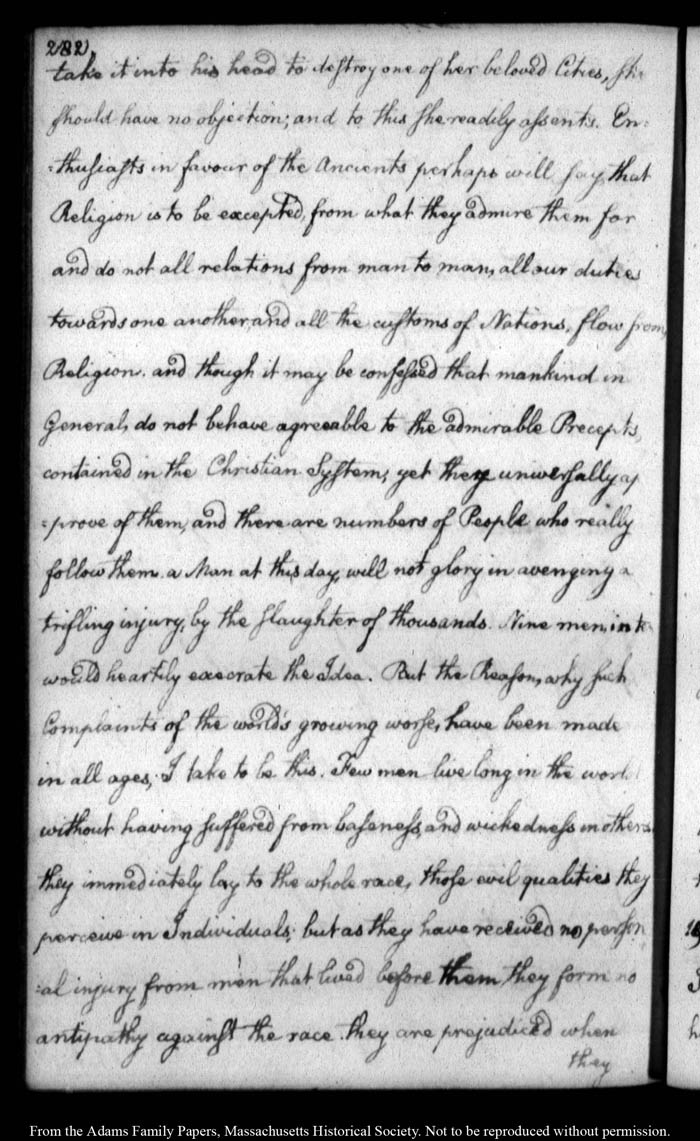 282.
take it into his head to destroy one of her beloved Cities, she
should have no objection; and to this she readily assents. En=
=thusiasts in favour of the Ancients perhaps will say, that
Religion is to be excepted, from what they admire them for
and do not all relations from man to man, all our duties
towards one another, and all the customs of Nations, flow from
Religion. and though it may be confessed that mankind in
General, do not behave agreeable to the admirable Precepts,
contained in the Christian System; yet they universally ap
=prove of them, and there are numbers of People who really
follow them. a Man at this day, will not glory in avenging a
trifling injury, by the slaughter of thousands. Nine men, in te
would heartily execrate the Idea. But the Reason, why such
Complaints of the world's growing worse, have been made
in all ages, I take to be this. Few men live long in the world
without having suffered from baseness, and wickedness in others
they immediately lay to the whole race, those evil qualities they
perceive in Individuals; but as they have received no person
=al injury from men that lived before them, they form no
antipathy against the race. they are prejudiced when
they
From the Adams Family Papers, Massachusetts Historical Society. Not to be reproduced without permission.